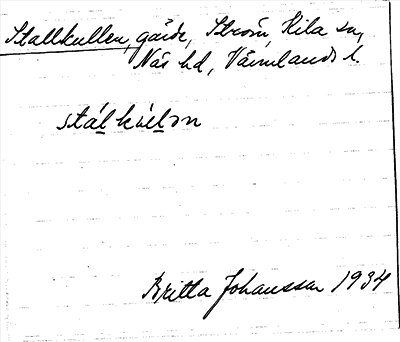 Stallkullen, gärde, Ström, Kila sn,
Näs hd, Värmlands l.
stálkùlən
Britta Johansson 1934